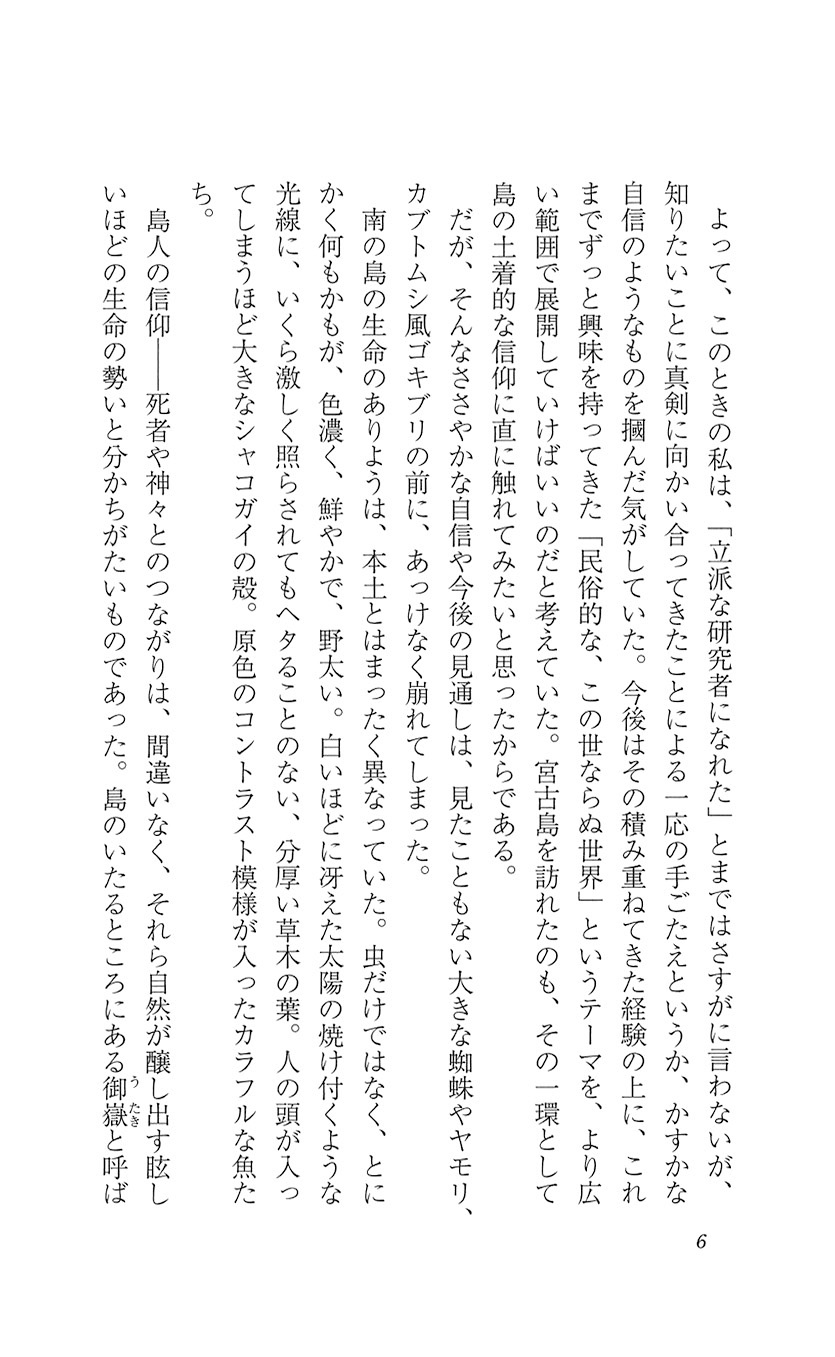 よって、このときの私は、「立派な研究者になれた」とまではさすがに言わないが、
知りたいことに真剣に向かい合ってきたことによる一応の手ごたえというか、かすかな
自信のようなものを摑んだ気がしていた。今後はその積み重ねてきた経験の上に、これ
までずっと興味を持ってきた「民俗的な、この世ならぬ世界」というテーマを、より広
い範囲で展開していけばいいのだと考えていた。宮古島を訪れたのも、その一環として
島の土着的な信仰に直に触れてみたいと思ったからである。
だが、そんなささやかな自信や今後の見通しは、見たこともない大きな蜘蛛やヤモリ、
カブトムシ風ゴキブリの前に、あっけなく崩れてしまった。
南の島の生命のありようは、本土とはまったく異なっていた。虫だけではなく、とに
かく何もかもが、色濃く、鮮やかで、野太い。白いほどに冴えた太陽の焼け付くような
光線に、いくら激しく照らされてもヘタることのない、分厚い草木の葉。人の頭が入っ
てしまうほど大きなシャコガイの殻。原色のコントラスト模様が入ったカラフルな魚た
ち。
島人の信仰――死者や神々とのつながりは、間違いなく、それら自然が醸し出す眩し
いほどの生命の勢いと分かちがたいものであった。島のいたるところにある御嶽と呼ば
うたき
6